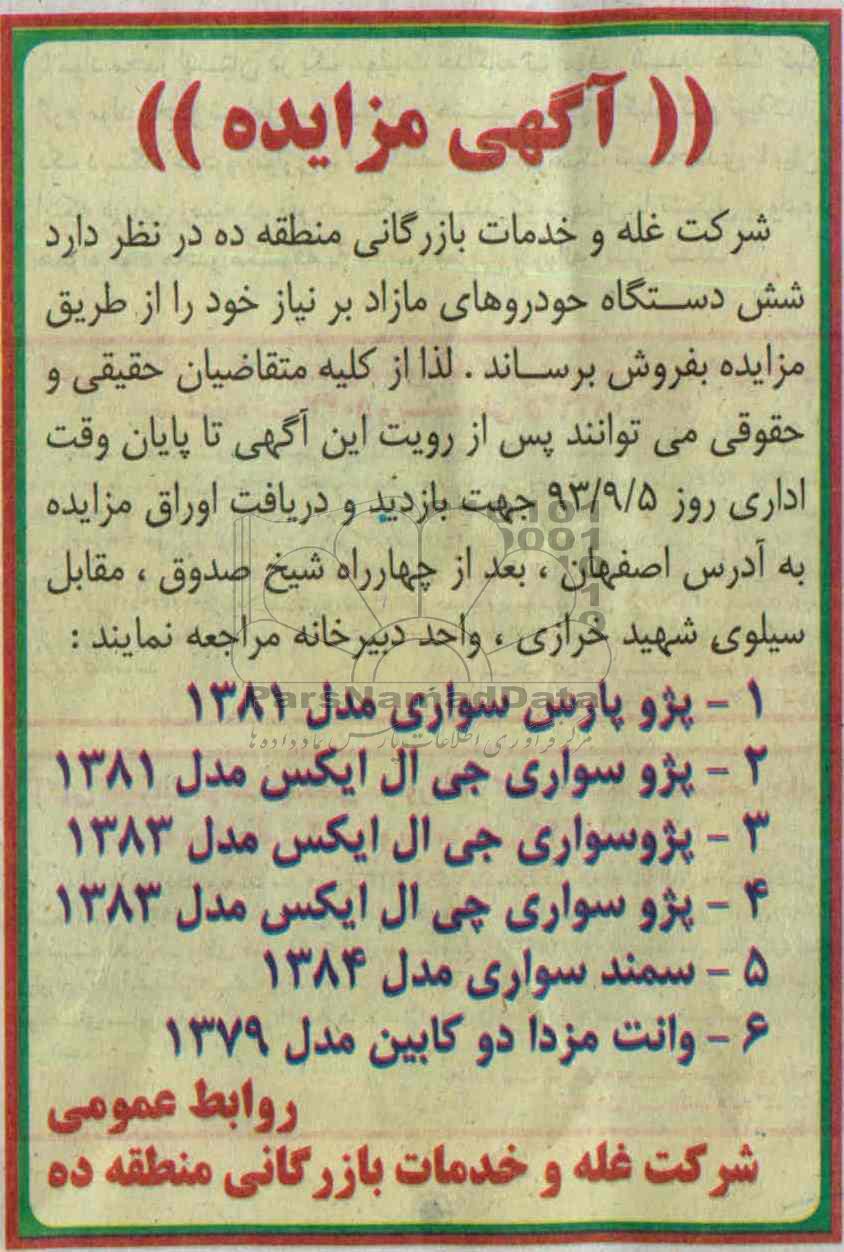 (( آگهی مزایده ))
شرکت غله و خدمات بازرگانی منطقه ده در نظر دارد
شش دستگاه خودروهای مازاد بر نیاز خود را از طریق
مزایده بفروش برساند . لذا از کلیه متقاضیان حقیقی و
حقوقی می توانند پس از رویت این آگهی تا پایان وقت
اداری روز ۹۳/۹/۵ جهت بازدید و دریافت اوراق مزایده
به آدرس اصفهان ، بعد از چهارراه شیخ صدوق ، مقابل
سیلوی شهید خرازی ، واحد دبیرخانه مراجعه نمایند :
۱ - پژو پارس سواری مدل ۱۳۸۱
ParsNamadData
مرکز فرآوری اطلاعات پارس نماد داده ها
۲ - پژو سواری جی ال ایکس مدل ۱۳۸۱
۳ - پژوسواری جی ال ایکس مدل ۱۳۸۳
۴ - پژو سواری جی ال ایکس مدل ۱۳۸۳
۵ - سمند سواری مدل ۱۳۸۴
۶ - وانت مزدا دو کابین مدل ۱۳۷۹
روابط عمومی
شرکت غله و خدمات بازرگانی منطقه ده